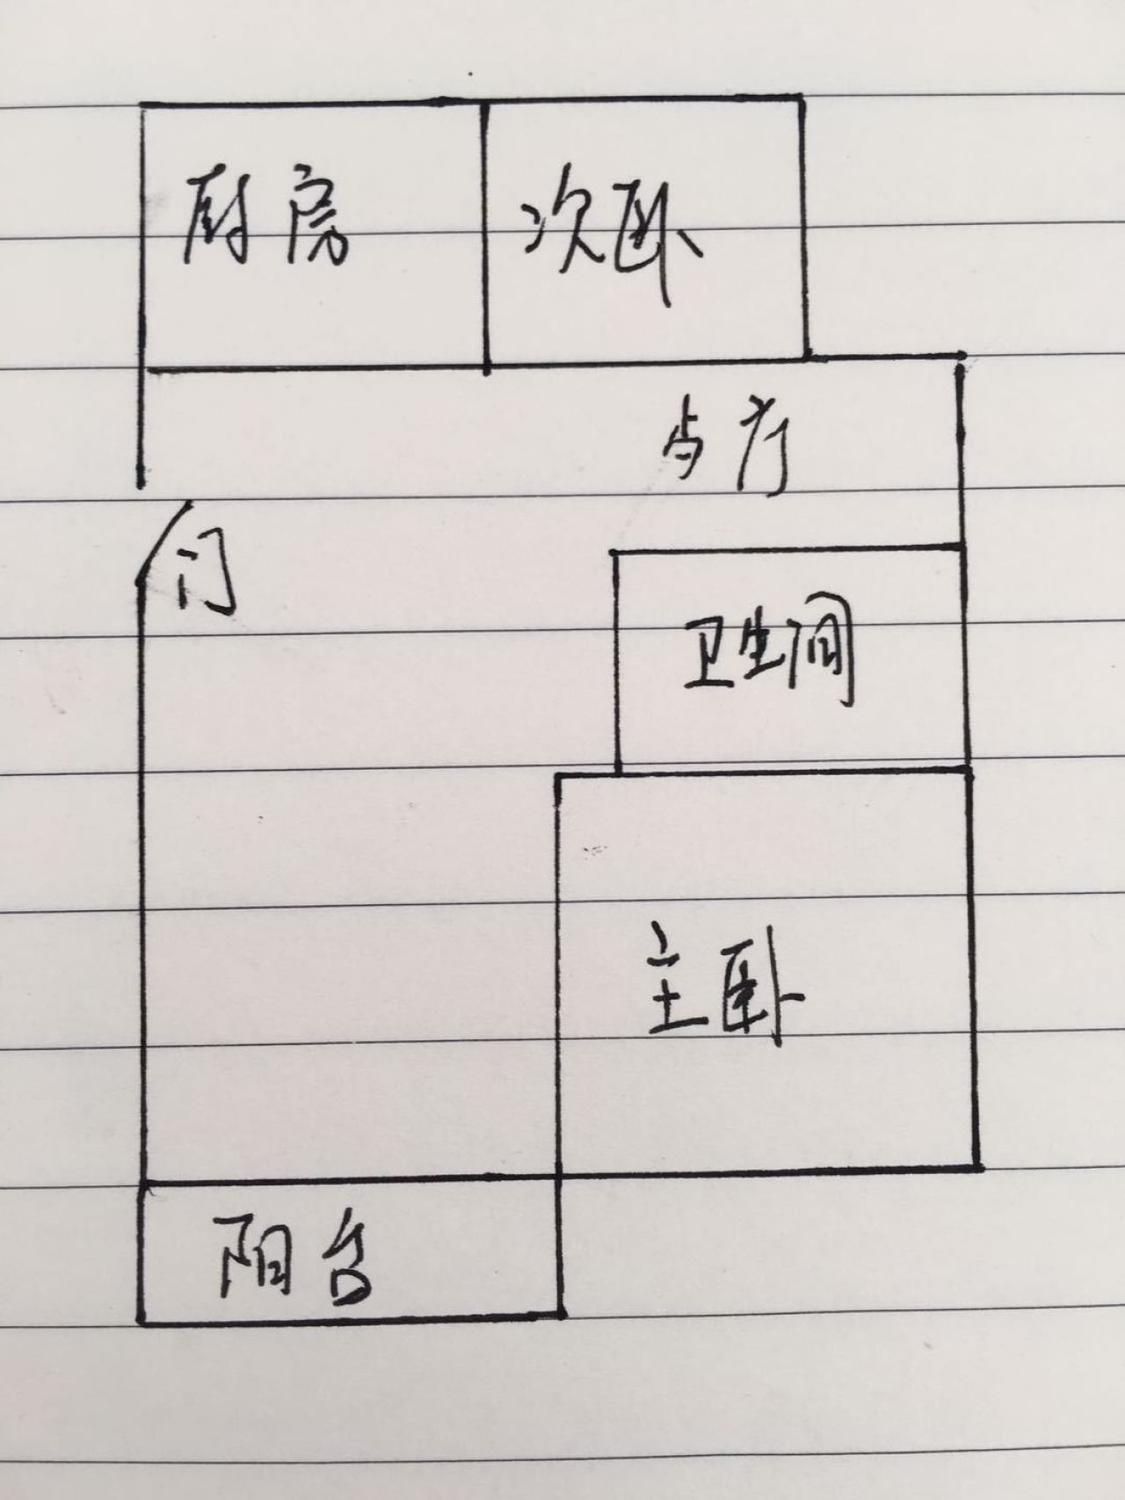 厨房 次卧
占厅
门
卫生间
主卧
阳台